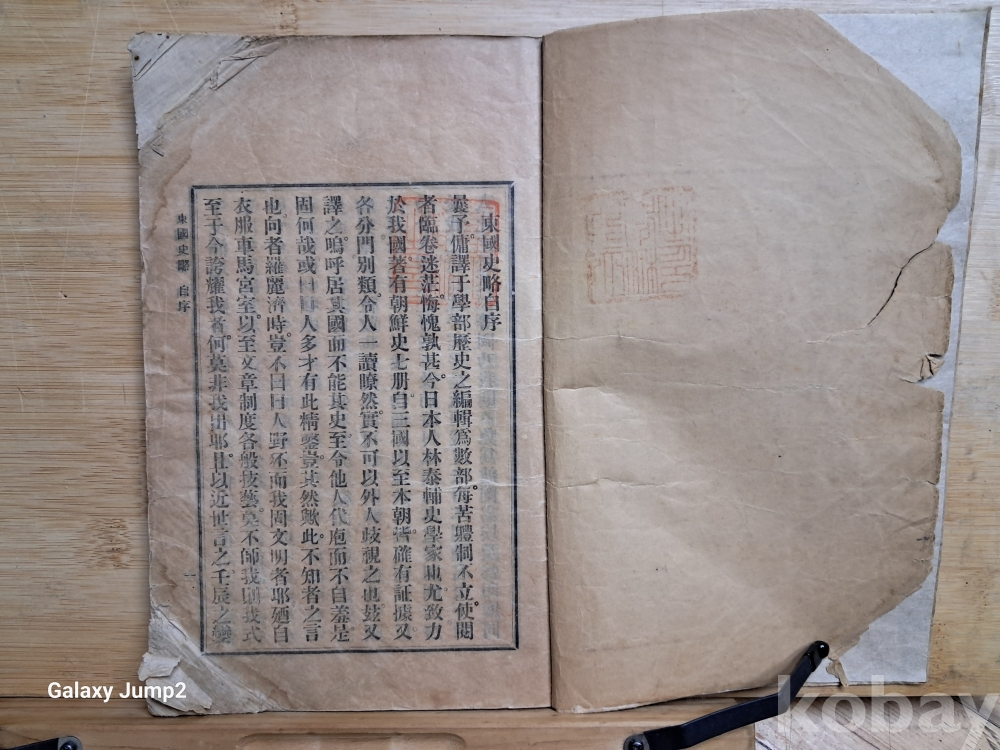 東國史略自序
曩予傭譯于學部歷史之編輯爲數部。每苦體制不立。使閱
者臨卷迷茫。悔愧孰甚。今日本人林泰輔史學家也尤致力
於我國。著有朝鮮史七册。自三國以至本朝。皆確有証據。又
各分門別類。令人一讀瞭然。實不可以外人歧視之也玆又
譯之。嗚呼居其國而不能其史至令他人代庖而不自羞。是
固何哉或曰日人多才有此精鑿。豈其然歟。此不知者之言
也。向者羅麗濟時。豈不曰日人野不而我國文明者耶。廼自
衣服車馬宮室。以至文章制度各般技藝。莫不師我
至于今誇耀我者。何莫非我耶。且以近世言之壬辰之變
東國史略 自序
一
Galaxy Jump2
kobay